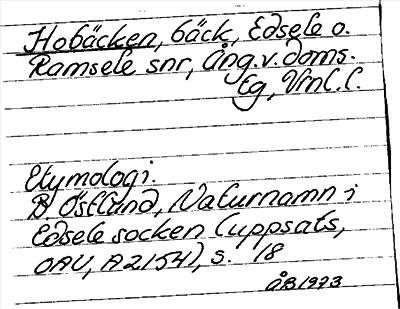 Hobäcken, bäck, Edsele o.
Ramsele snr, Ång. v. doms.
lg, Vnl. l.
Etymologi.
B. Östlund, Naturnamn i
Edsele socken (uppsats,
OAU, A2154), s. 18
ÅB 1973